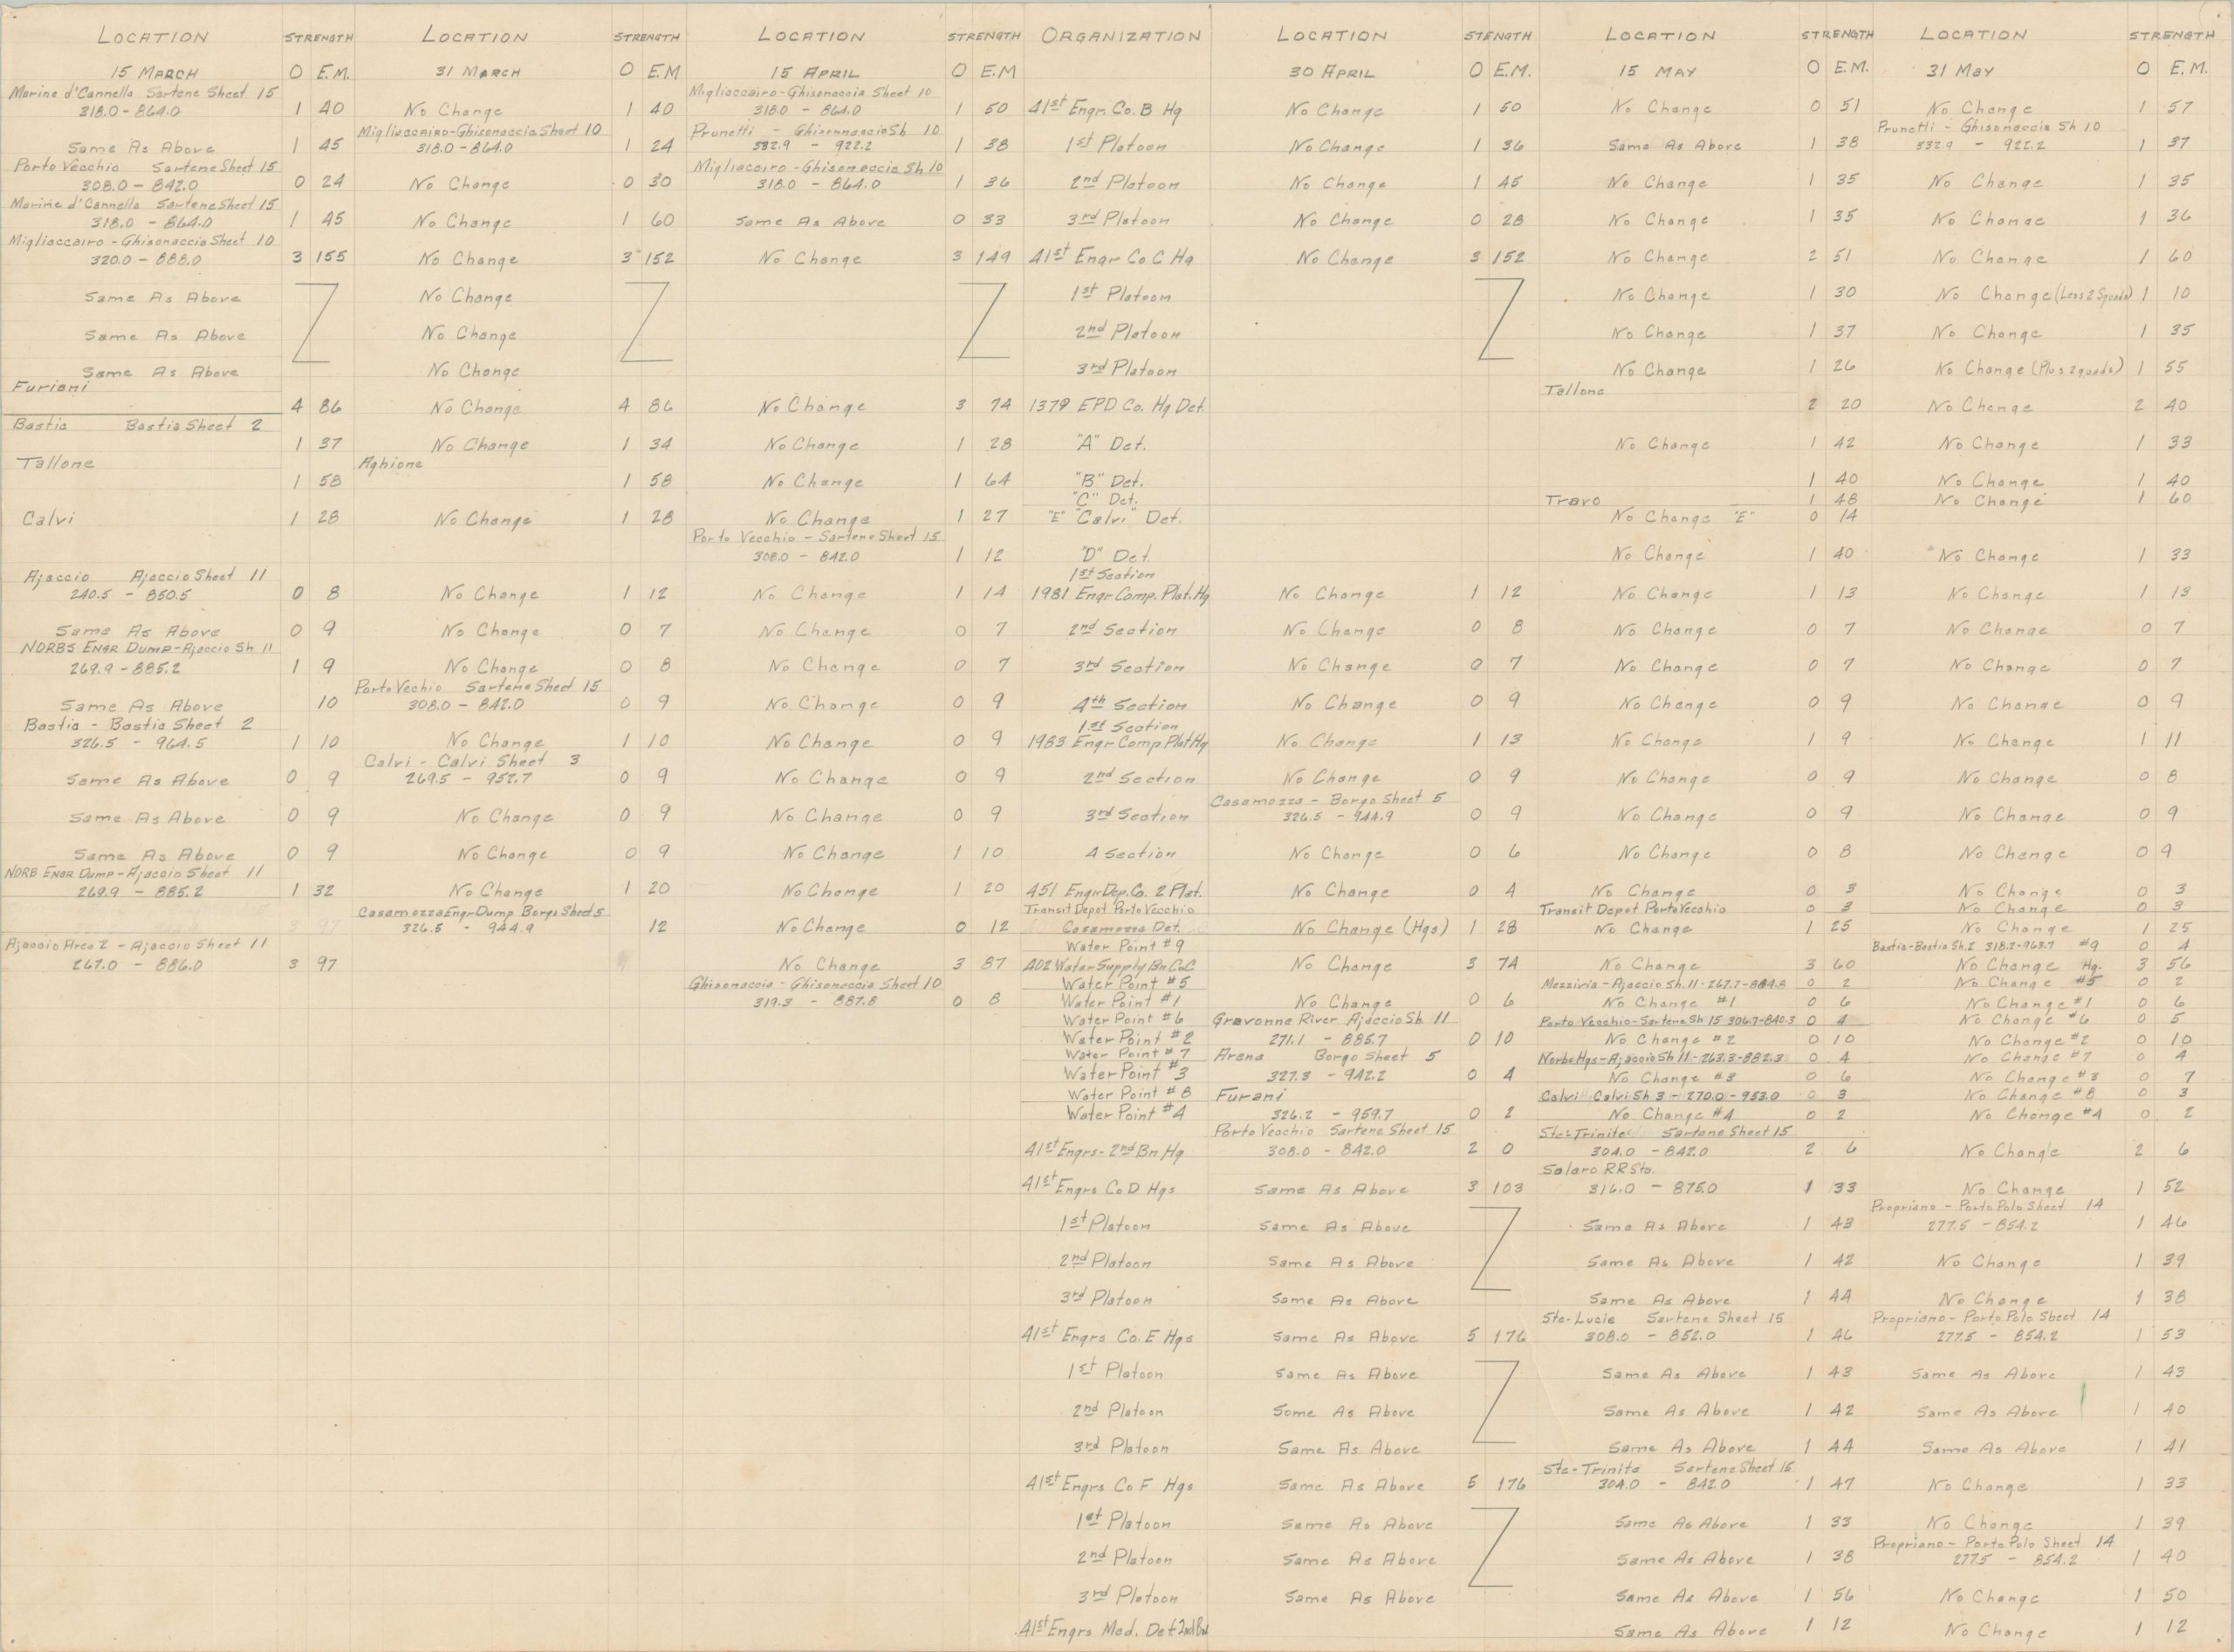 LOCATION STRENGTH LOCATION STRENGTH LOCATION STRENGTH ORGANIZATION LOCATION STENGTH LOCATION STRENGTH LOCATION STRENGTH
15 MARCH O E.M. 31 MARCH O E.M 15 APRIL O E.M 30 APRIL O E.M. 15 MAY O E.M. 31 MAY O E.M.
Marine d'Cannella Sartene Sheet 15 Migliaccairo-Ghisonaccia Sheet 10
318.0-864.0 1 40 No Change 1 40 318.0 - 864.0 1 50 41st Engr. Co. B Hq No Change 1 50 No Change 0 51 No Change 1 57
Migliaccairo-Ghisonaccia Sheet 10 Prunetti - Ghisonnaccia Sh 10 Prunetti - Ghisonaccia Sh 10
Same As Above 1 45 318.0-864.0 1 24 332.9 - 922.2 1 38 1st Platoon No Change 1 36 Same As Above 1 38 332.9 - 922.2 1 37
Porto Vecchio Sartene Sheet 15 Migliacciro-Ghisonaccia Sh 10
308.0 - 842.0 0 24 No Change 0 30 318.0 - 864.0 1 36 2nd Platoon No Change 1 45 No Change 1 35 No Change 1 35
Marine d'Cannella Sartene Sheet 15
318.0 - 864.0 1 45 No Change 1 60 Same As Above 0 33 3rd Platoon No Change 0 28 No Change 1 35 No Change 1 36
Migliaccairo - Ghisonaccia Sheet 10
320.0 - 888.0 3 155 No Change 3 152 No Change 3 149 41st Engr Co C Hq No Change 3 152 No Change 2 51 No Change 1 60
Same As Above No Change 1st Platoon No Change 1 30 No Change (Less 2 Squads) 1 10
Same As Above No Change 2nd Platoon No Change 1 37 No Change 1 35
Same As Above No Change 3rd Platoon No Change 1 26 No Change (Plus 2 quads) 1 55
Furiani Tallone
4 86 No Change 4 86 No Change 3 74 1379 EPD Co. Hq Det. 2 20 No Change 2 40
Bastia Bastia Sheet 2
1 37 No Change 1 34 No Change 1 28 "A" Det. No Change 1 42 No Change 1 33
Tallone Aghione
1 58 1 58 No Change 1 64 "B" Det. 1 40 No Change 1 40
"C" Det. Travo 1 48 No Change 1 60
Calvi 1 28 No Change 1 28 No Change 1 27 "E" "Calvi" Det. No Change "E" 0 14
Porto Vecchio - Sartene Sheet 15
308.0 - 842.0 1 12 "D" Det. No Change 1 40 No Change 1 33
Ajaccio Ajaccio Sheet 11 1st Section
240.5 - 850.5 0 8 No Change 1 12 No Change 1 14 1981 Engr Comp. Plat. Hq No Change 1 12 No Change 1 13 No Change 1 13
Same As Above 0 9 No Change 0 7 No Change 0 7 2nd Section No Change 0 8 No Change 0 7 No Change 0 7
NORBS ENGR DUMP-Ajaccio Sh 11
269.9 - 885.2 1 9 No Change 0 8 No Change 0 7 3rd Section No Change 0 7 No Change 0 7 No Change 0 7
Porto Vechio Sartene Sheet 15
Same As Above 10 308.0 - 842.0 0 9 No Change 0 9 4th Section No Change 0 9 No Change 0 9 No Change 0 9
Bastia - Bastia Sheet 2 1st Section
326.5 - 964.5 1 10 No Change 1 10 No Change 0 9 1983 Engr Comp Plat Hq No Change 1 13 No Change 1 9 No Change 1 11
Calvi - Calvi Sheet 3
Same As Above 0 9 269.5 - 952.7 0 9 No Change 0 9 2nd Section No Change 0 9 No Change 0 9 No Change 0 8
Casamozza - Borgo Sheet 5
Same As Above 0 9 No Change 0 9 No Change 0 9 3rd Section 326.5 - 944.9 0 9 No Change 0 9 No Change 0 9
Same As Above 0 9 No Change 0 9 No Change 1 10 4 Section No Change 0 6 No Change 0 8 No Change 0 9
NORB ENGR DUMP-Ajaccio Sheet 11
269.9 - 885.2 1 32 No Change 1 20 No Change 1 20 451 Engr Dep. Co. 2 Plat. No Change 0 4 No Change 0 3 No Change 0 3
Casamozza Engr Dump Borgo Sheet 5 Transit Depot Porto Vecchio Transit Depot Porto Vecchio 0 3 No Change 0 3
326.5 - 944.9 12 No Change 0 12 Casamozza Det. No Change (Hqs) 1 28 No Change 1 25 No Change 1 25
Ajaccio Area 2 - Ajaccio Sheet 11 Water Point #9 Bastia-Bastia Sh.2 318.2-963.7 #9 0 4
267.0 - 886.0 3 97 No Change 3 87 402 Water Supply Bn Co C No Change 3 74 No Change 3 60 No Change Hq. 3 56
Ghisonaccia - Ghisonaccia Sheet 10 Water Point #5 Mezzivia-Ajaccio Sh. 11-267.7-884.8 0 2 No Change #5 0 2
319.3 - 887.8 0 8 Water Point #1 No Change 0 6 No Change #1 0 6 No Change #1 0 6
Water Point #6 Gravonne River Ajaccio Sh 11 Porto Vecchio-Sartene Sh 15 306.7-840.3 0 4 No Change #6 0 5
Water Point #2 271.1 - 885.7 0 10 No Change #2 0 10 No Change #2 0 10
Water Point #7 Arena Borgo Sheet 5 Norbs Hqs-Ajaccio Sh 11-263.3-882.3 0 4 No Change #7 0 4
Water Point #3 327.3 - 942.2 0 4 No Change #3 0 6 No Change #3 0 7
Water Point #8 Furani Calvi Calvi Sh 3 - 270.0 - 953.0 0 3 No Change #8 0 3
Water Point #4 326.2 - 959.7 0 2 No Change #4 0 2 No Change #4 0 2
Porto Vecchio Sartene Sheet 15 Ste-Trinite Sartene Sheet 15
41st Engrs-2nd Bn Hq 308.0 - 842.0 2 0 304.0 - 842.0 2 6 No Change 2 6
Solaro RR Sta.
41st Engrs Co D Hqs Same As Above 3 103 316.0 - 875.0 1 33 No Change 1 52
Propriano - Porto Polo Sheet 14
1st Platoon Same As Above Same As Above 1 43 277.5 - 854.2 1 46
2nd Platoon Same As Above Same As Above 1 42 No Change 1 39
3rd Platoon Same As Above Same As Above 1 44 No Change 1 38
Ste-Lucie Sartene Sheet 15 Propriano - Porto Polo Sheet 14
41st Engrs Co. E Hqs Same As Above 5 176 308.0 - 852.0 1 46 277.5 - 854.2 1 53
1st Platoon Same As Above Same As Above 1 43 Same As Above 1 43
2nd Platoon Same As Above Same As Above 1 42 Same As Above 1 40
3rd Platoon Same As Above Same As Above 1 44 Same As Above 1 41
Ste-Trinite Sartene Sheet 15
41st Engrs Co F Hqs Same As Above 5 176 304.0 - 842.0 1 47 No Change 1 33
1st Platoon Same As Above Same As Above 1 33 No Change 1 39
Propriano - Porto Polo Sheet 14
2nd Platoon Same As Above Same As Above 1 38 277.5 - 854.2 1 40
3rd Platoon Same As Above Same As Above 1 56 No Change 1 50
41st Engrs Med. Det 2nd Bn Same As Above 1 12 No Change 1 12